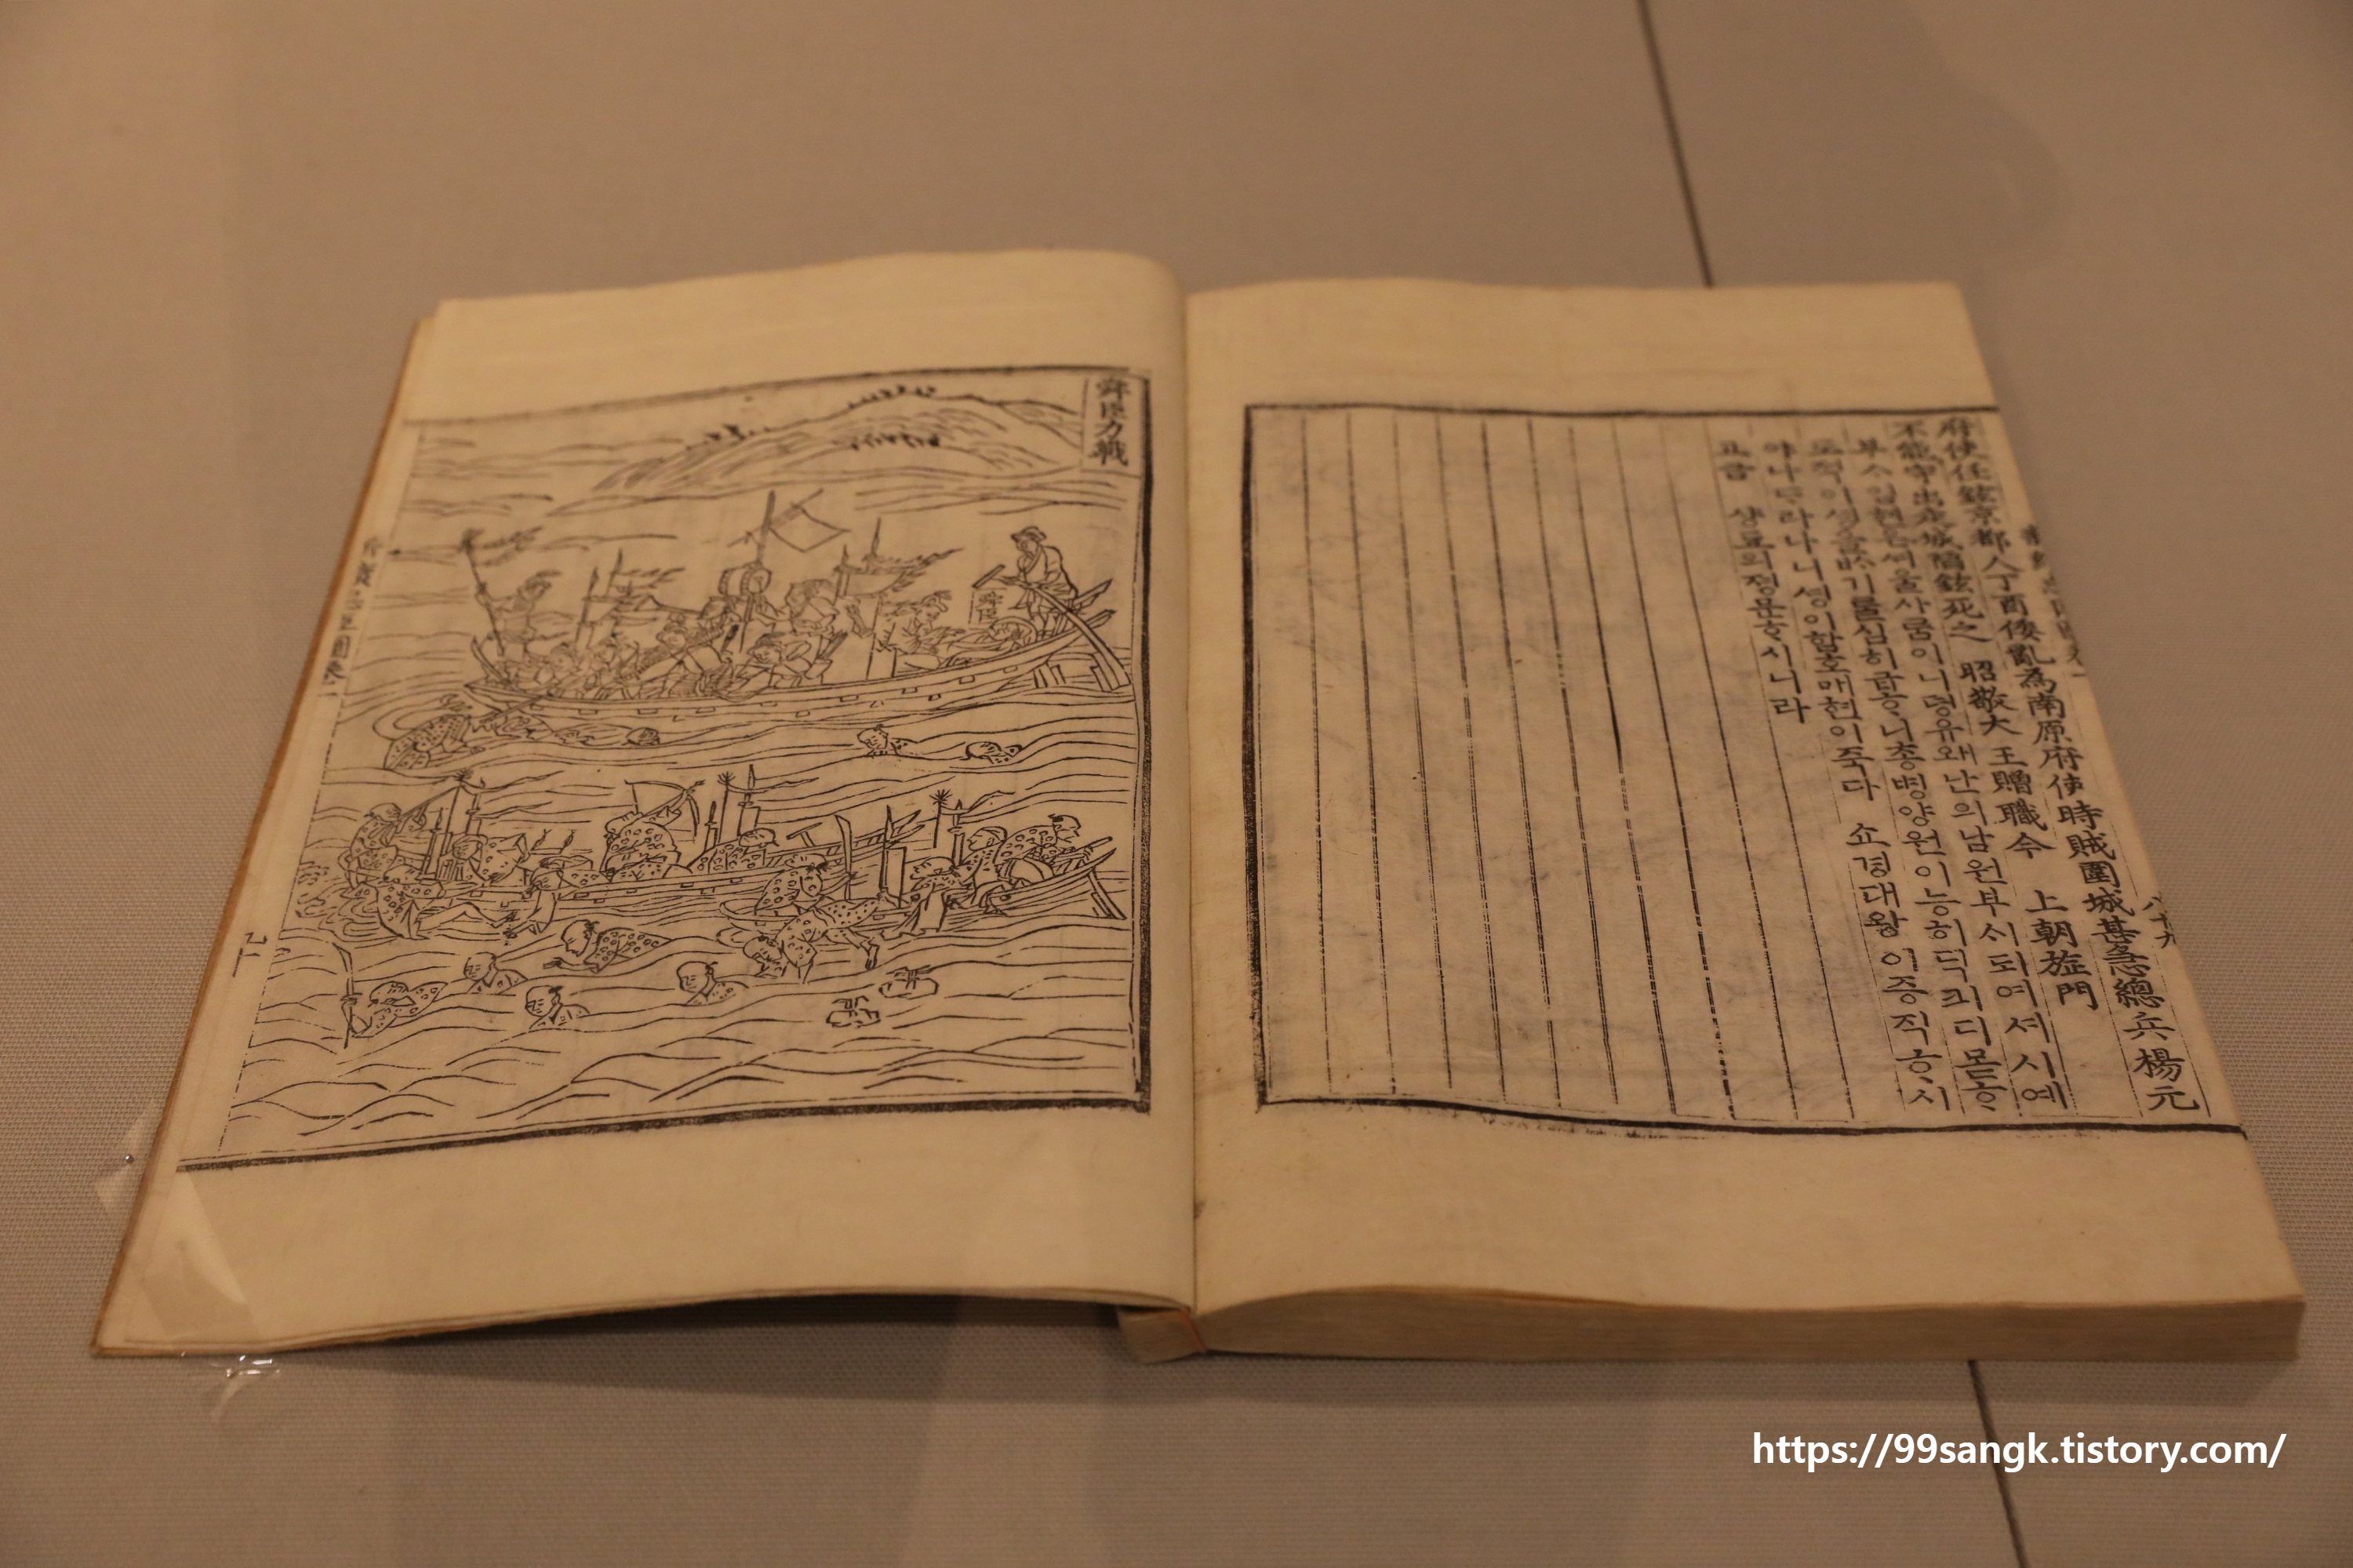 府使任鉉京都人丁酉倭亂為南原府使時賊圍城甚急總兵楊元
不能守出走城陷鉉死之 昭敬大王贈職今 上朝旌門
부ᄉᆞ임현은셔울사ᄅᆞᆷ이니뎡유왜난의남원부ᄉᆞ되여셔시예
도적이셩을ᄡᆞ기ᄅᆞᆯ심히급ᄒᆞ니총병양원이능히딕킈디몯ᄒᆞ
야나ᄃᆞ라나니셩이함호매현이죽다 쇼경대왕 이증직ᄒᆞ시
고금 샹됴의졍문ᄒᆞ시니라
八十九
舜臣力戰
https://99sangk.tistory.com/